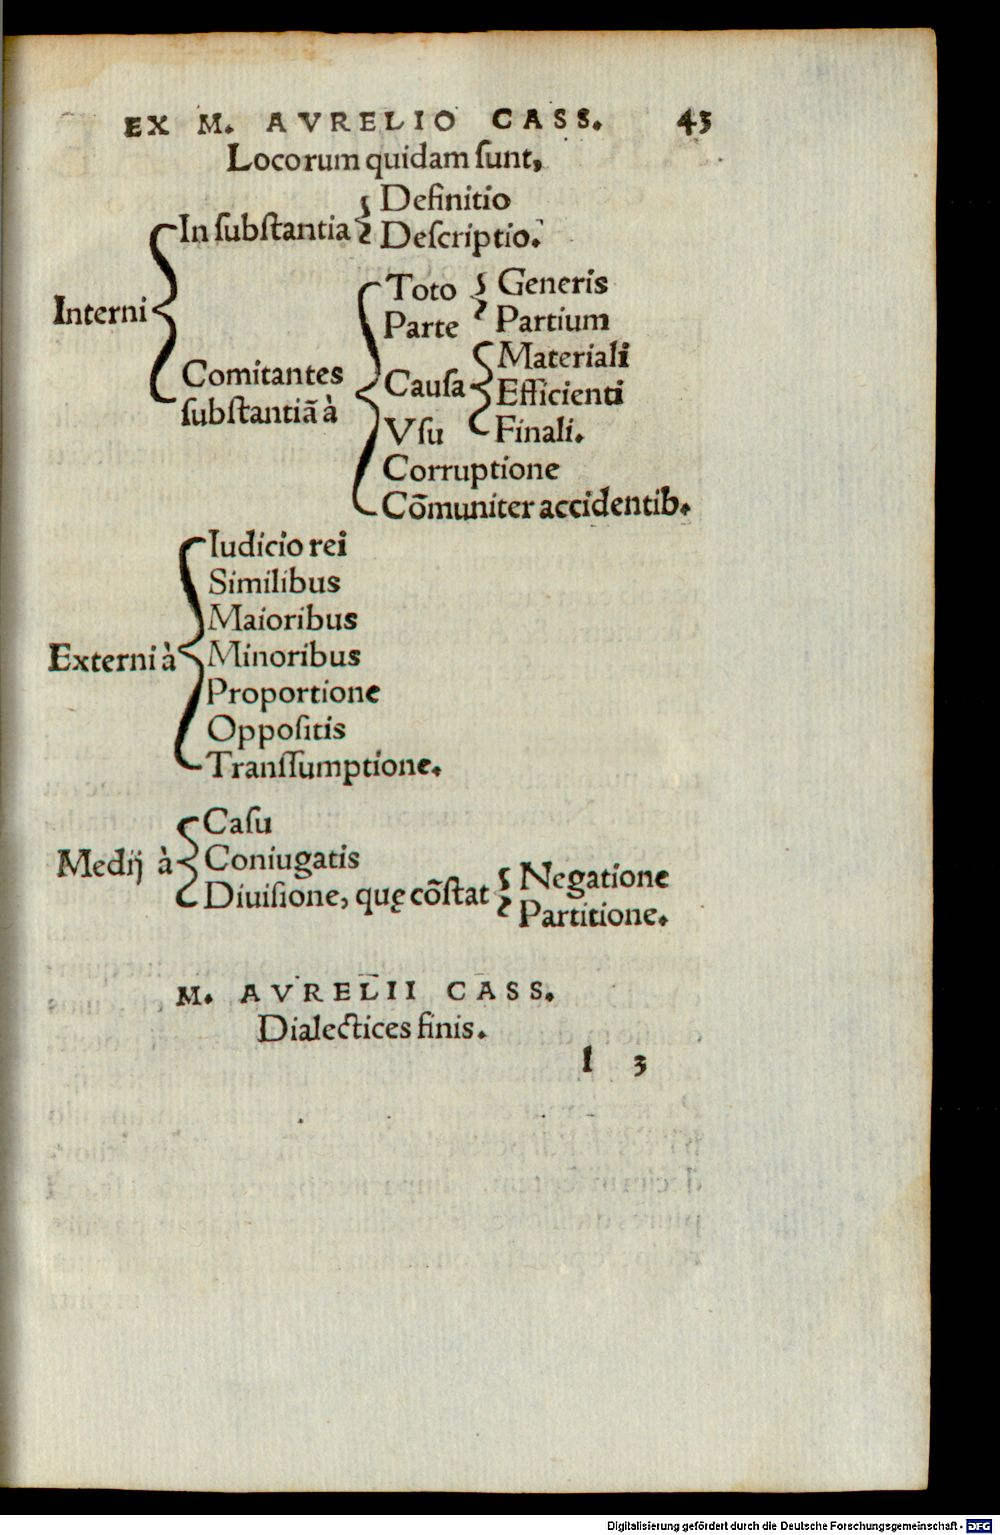 EX M. AVRELIO CASS. 43
Locorum quidam ſunt,
Definitio
In ſubſtantia
Deſcriptio.
Interni
Toto
Generis
Parte
Partium
Materiali
Comitantes
ſubſtantiã à
Cauſa
Efficienti
Vſu
Finali.
Corruptione
Cõmuniter accidentib.
Iudicio rei
Similibus
Maioribus
Externi à
Minoribus
Proportione
Oppoſitis
Tranſſumptione.
Caſu
Medij à
Coniugatis
Diuiſione, quę cõſtat
Negatione
Partitione.
M. AVRELII CASS.
Dialectices finis.
I 3
Digitalisierung gefördert durch die Deutsche Forschungsgemeinschaft - DFG